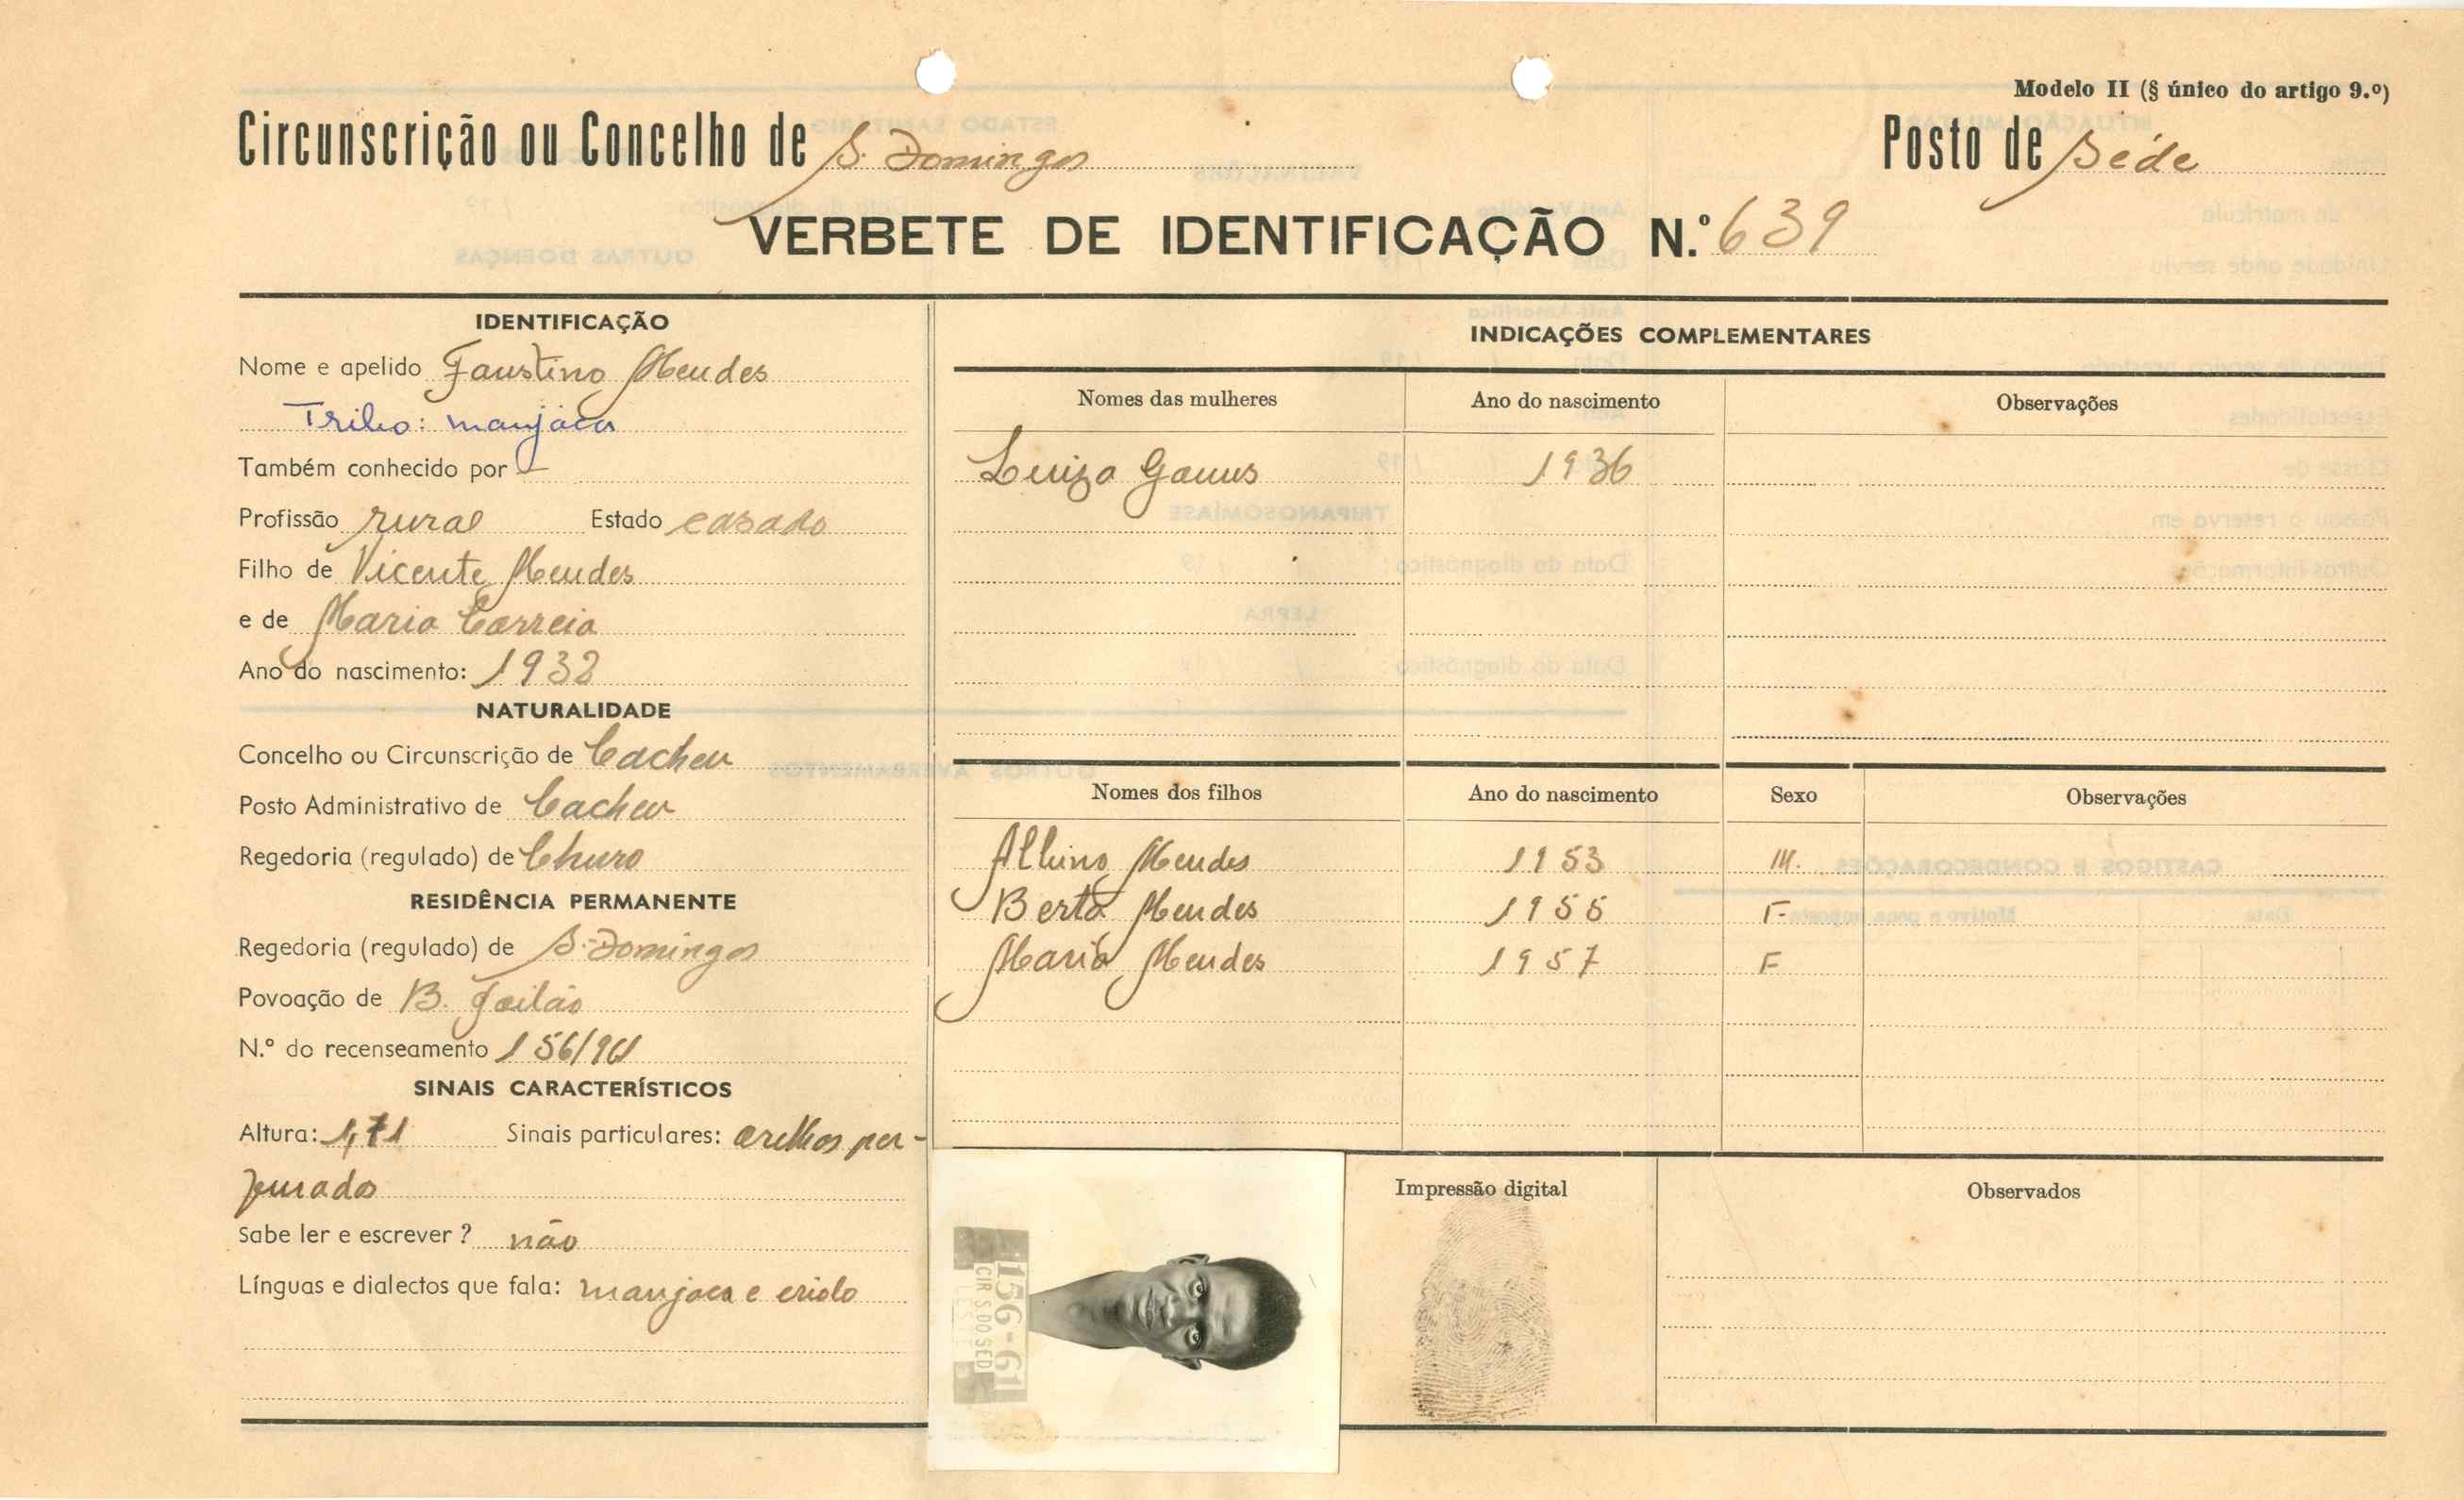 Modelo II (§ único do artigo 9.º)
Circunscrição ou Concelho de S. Domingos Posto de Séde
VERBETE DE IDENTIFICAÇÃO N.º 639
IDENTIFICAÇÃO
Nome e apelido Faustino Mendes
Tribo: manjaca
Também conhecido por —
Profissão rural Estado casado
Filho de Vicente Mendes
e de Maria Correia
Ano do nascimento: 1932
NATURALIDADE
Concelho ou Circunscrição de Cacheu
Posto Administrativo de Cacheu
Regedoria (regulado) de Churo
RESIDÊNCIA PERMANENTE
Regedoria (regulado) de S. Domingos
Povoação de B.
N.º do recenseamento 156/961
SINAIS CARACTERÍSTICOS
Altura: 1,71 Sinais particulares: orelhas per-
furados
Sabe ler e escrever? não
Línguas e dialectos que fala: manjaca e criolo
INDICAÇÕES COMPLEMENTARES
Nomes das mulheres Ano do nascimento Observações
Luiza 1936
Nomes dos filhos Ano do nascimento Sexo Observações
Albino Mendes 1953 M.
Berta Mendes 1955 F.
Maria Mendes 1957 F
156-61
CIR S.DO SED
Impressão digital
Observados